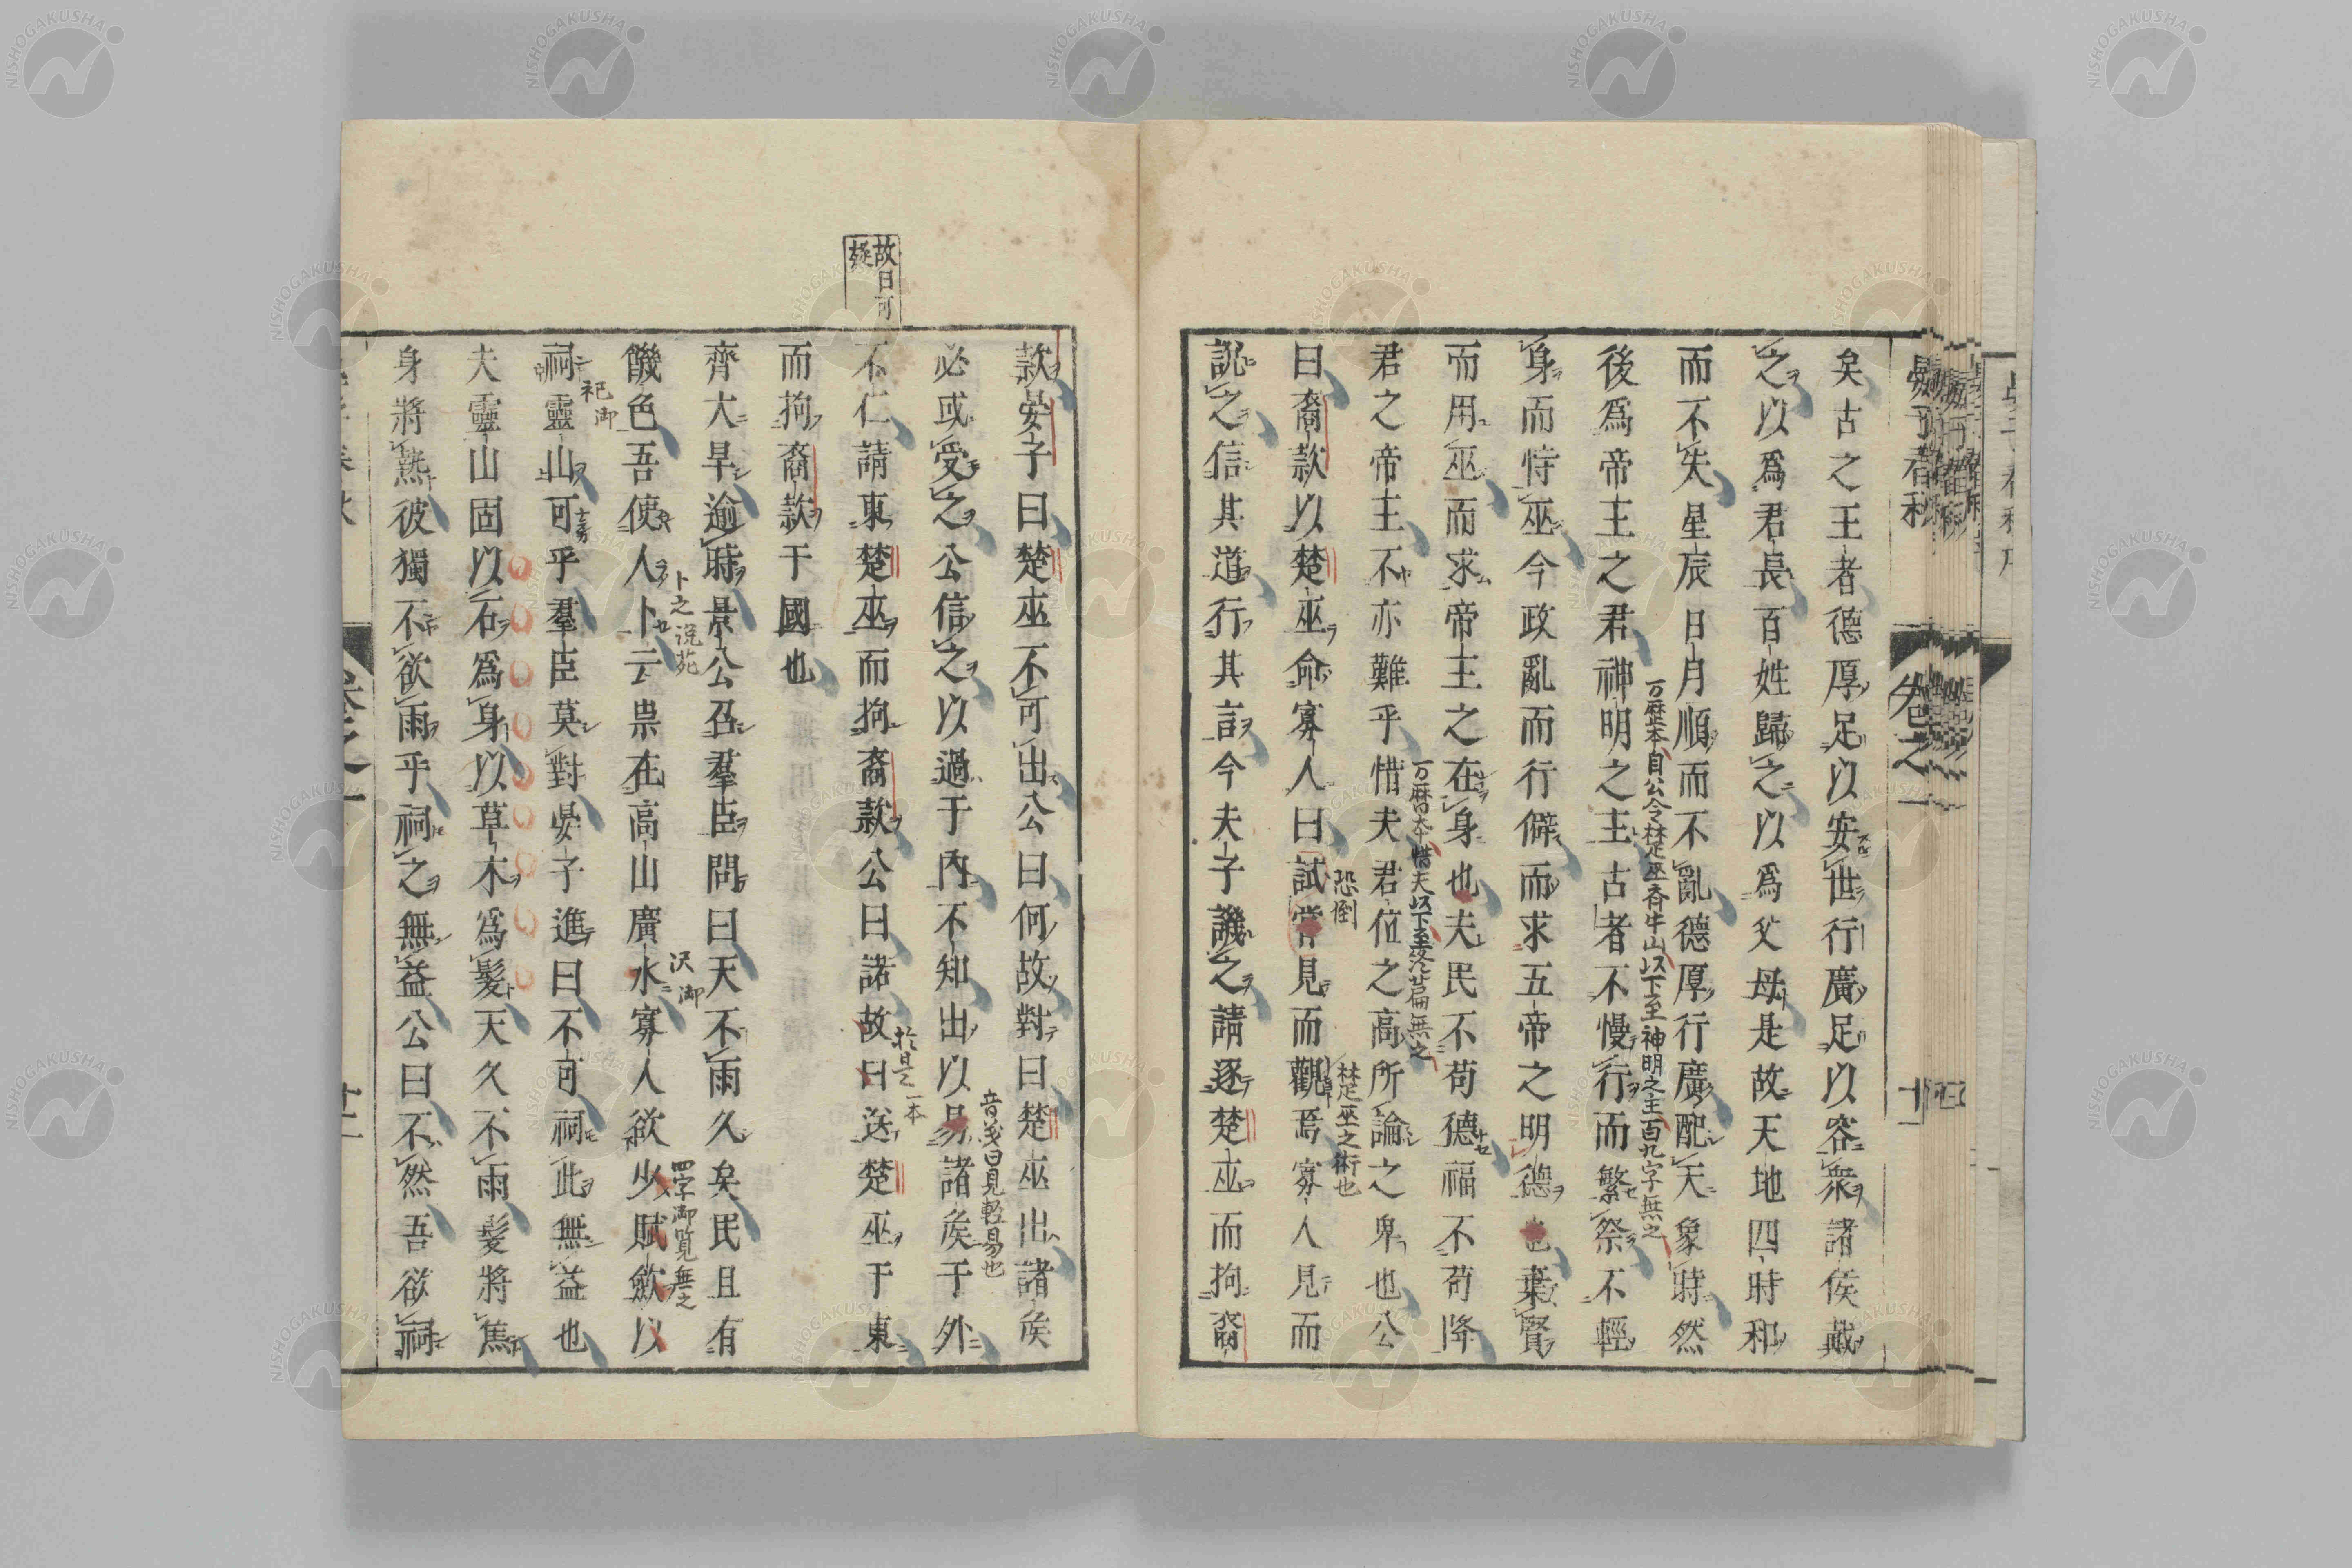 晏子春秋
卷之一
十一
矣古之王者德厚足以安世行廣足以容衆諸侯戴
之以爲君長百姓歸之以爲父母是故天地四時和
而不失星辰日月順而不亂德厚行廣配天象時然
万歷本自公令楚巫齊牛山以下至神明之主百九字無之
後爲帝王之君神明之主古者不慢行而繁祭不輕
身而恃巫今政亂而行僻而求五帝之明德也棄賢
而用巫而求帝王之在身也夫民不苟德福不苟降
万曆本惜夫以下至終篇無之
君之帝王不亦難乎惜夫君位之高所論之卑也公
恐倒
楚巫之術也
曰裔款以楚巫命寡人曰試嘗見而觀焉寡人見而
説之信其道行其言今夫子譏之請逐楚巫而拘裔
款晏子曰楚巫不可出公曰何故對曰楚巫出諸矦
音義曰見輕易也
必或受之公信之以過于内不知出以易諸矦于外
故日可
疑
於是一本
不仁請東楚巫而拘裔款公曰諾故曰送楚巫于東
而拘裔款于國也
齊大旱逾時景公召羣臣問曰天不雨久矣民且有
卜之説苑
沢御
四字御覽無之
饑色吾使人卜云祟在高山廣水寡人欲少賦斂以
祀御
祠靈山可乎羣臣莫對晏子進曰不可祠此無益也
夫靈山固以石爲身以草木爲髮天久不雨髮將焦
身將熱彼獨不欲雨乎祠之無益公曰不然吾欲祠
卷之一